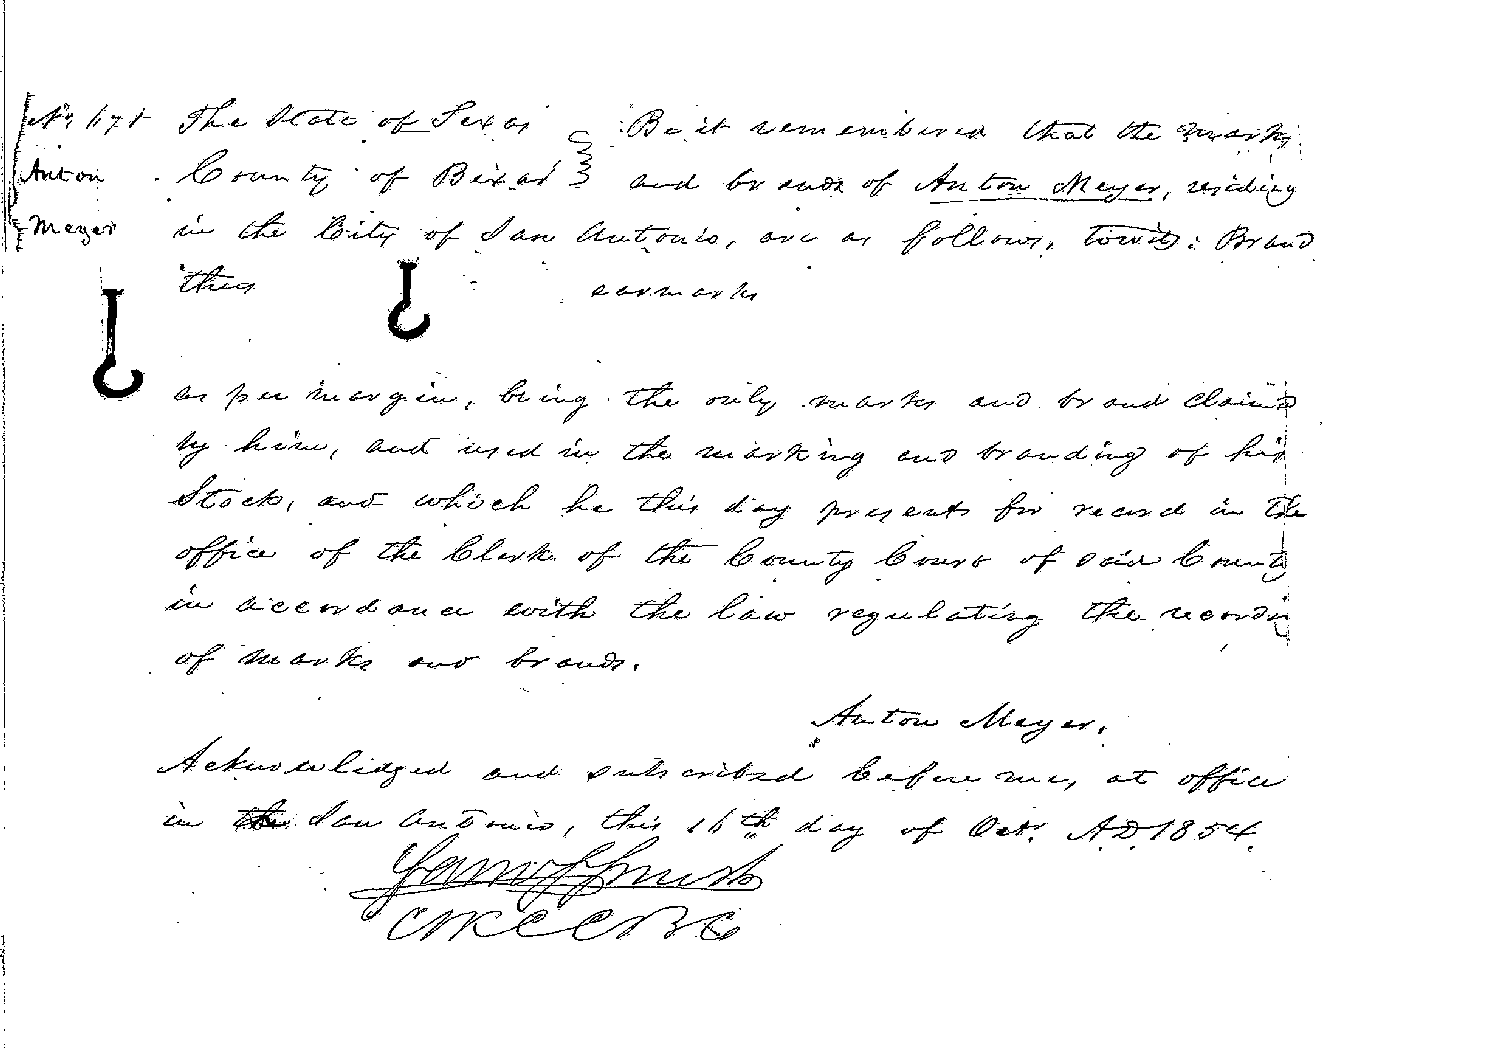 No. 678 The State of Texas Be it remembered that the marks
Anton County of Bexar and brands of Anton Meyer, residing
Meyer in the City of San Antonio, are as follows, towit: Brand
thus earmarks
as per margin, being the only marks and brand claimed
by him, and used in the marking and branding of his
Stock, and which he this day presents for record in the
office of the Clerk of the County Court of said County
in accordance with the law regulating the recordin
of marks and brands.
Anton Meyer.
Acknowledged and subscribed before me, at office
in the San Antonio, this 16th day of Octr. A.D. 1854.